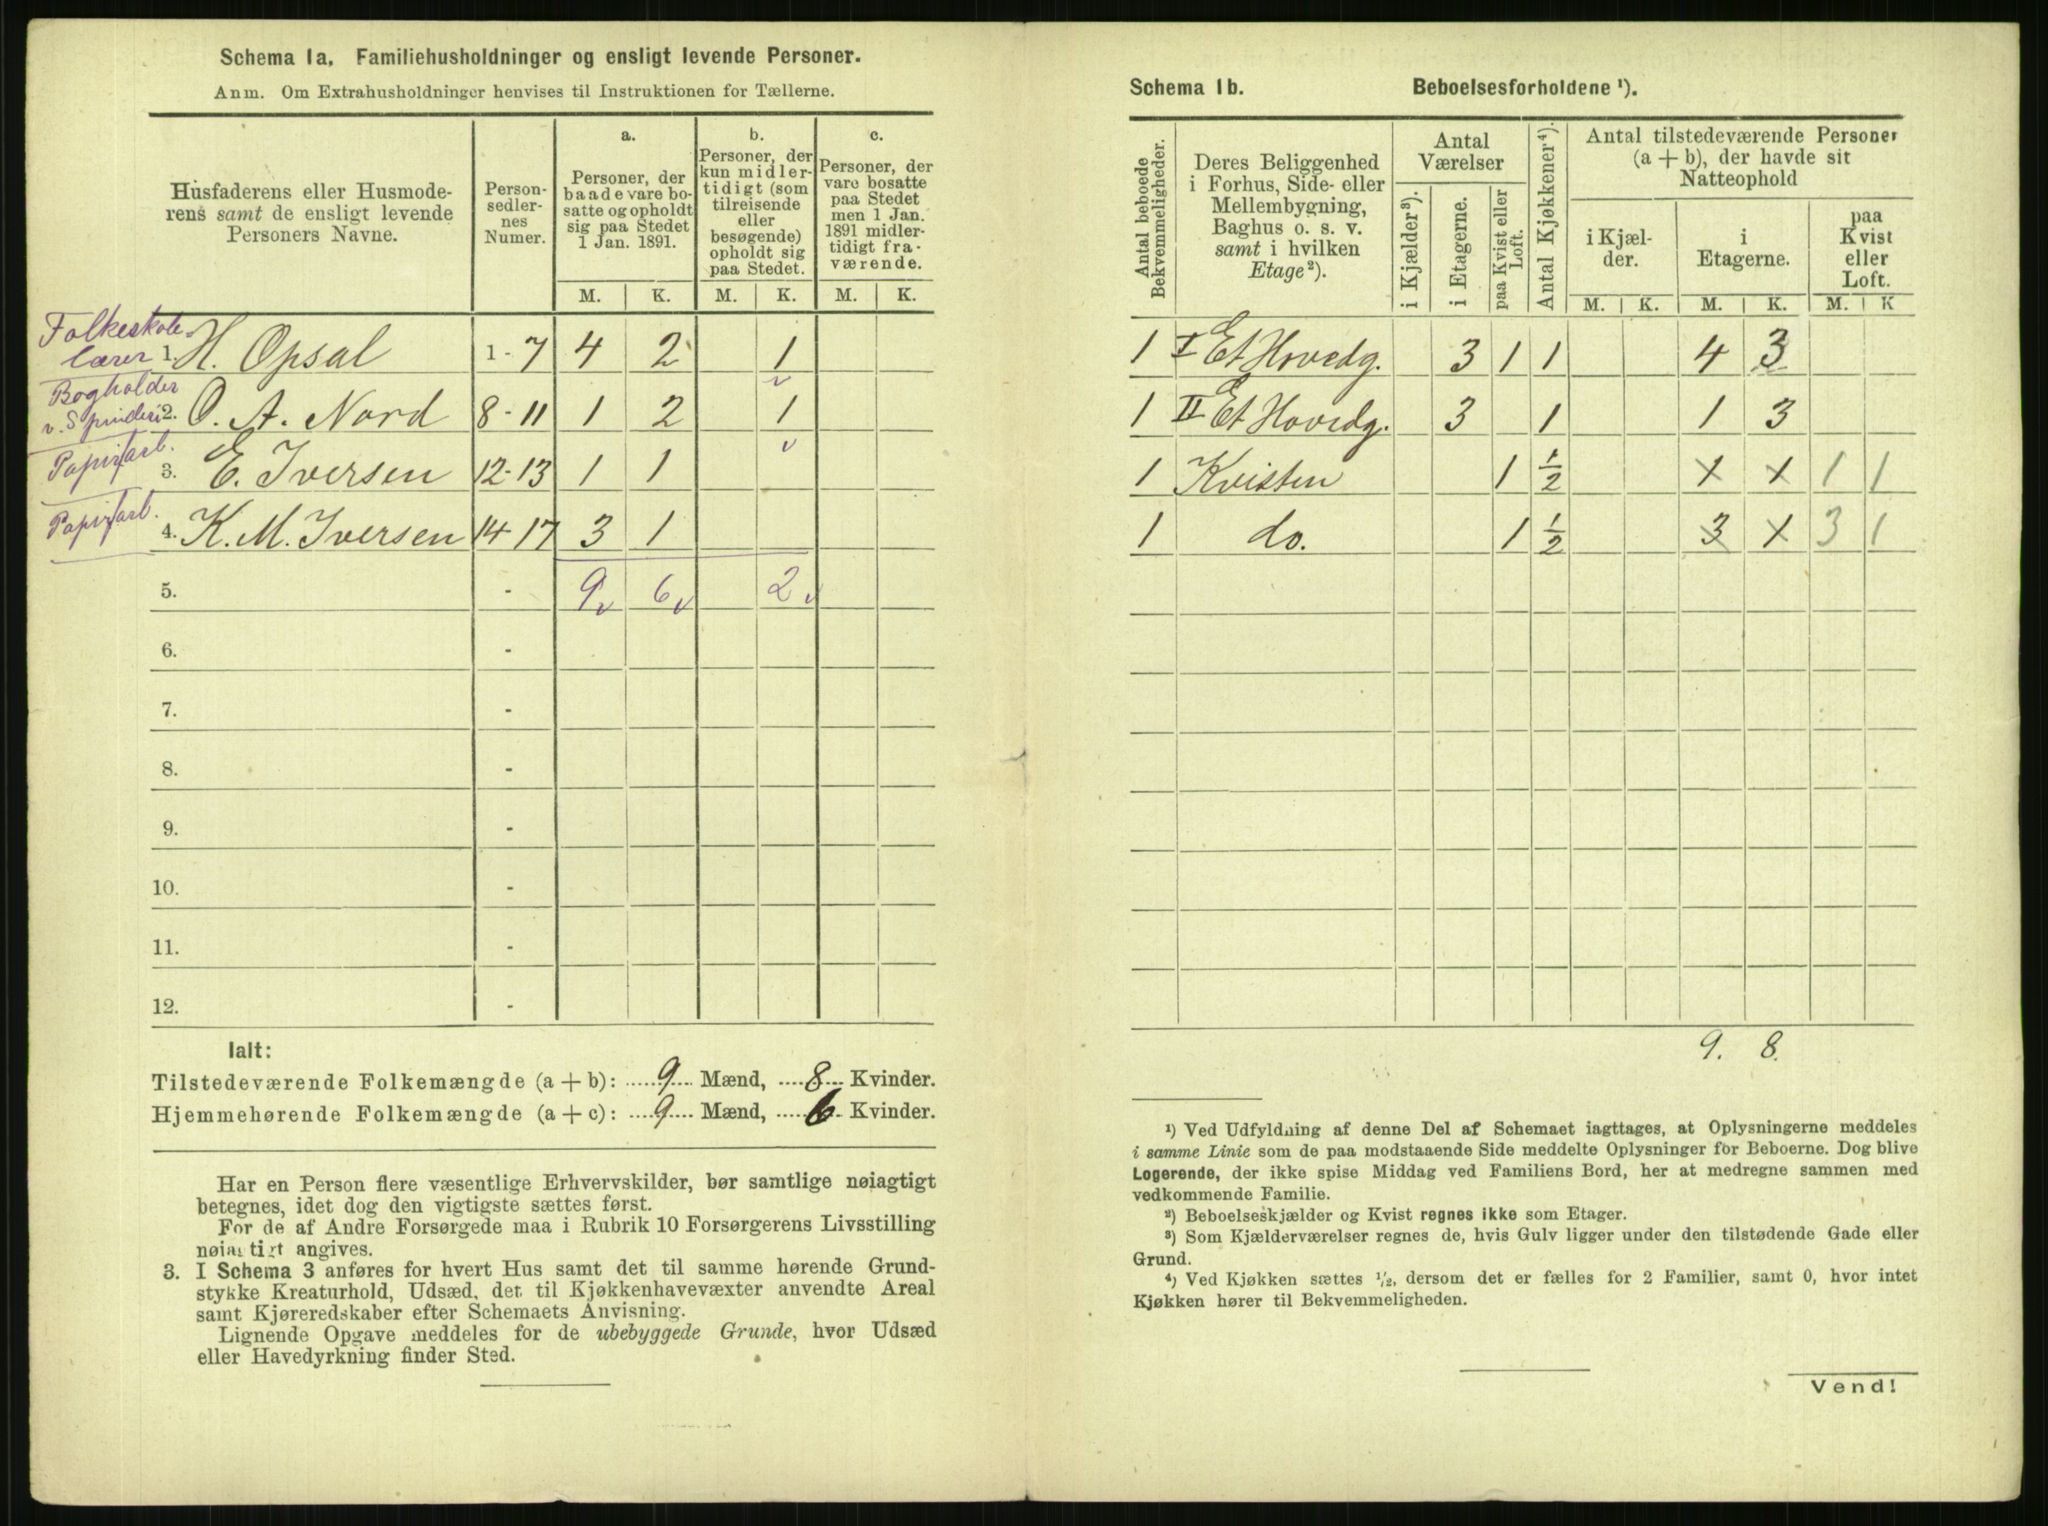 Schema 1a. Familiehusholdninger og ensligt levende Personer.
Anm. Om Extrahusholdninger henvises til Instruktionen for Tællerne.
Husfaderens eller Husmode-
rens samt de ensligt levende
Personers Navne.
Person-
sedler-
nes
Numer.
a.
Personer, der
baade vare bo-
satte og opholdt
sig paa Stedet
1 Jan. 1891.
b.
Personer, der
kun midler-
tidigt (som
tilreisende
eller
besøgende)
opholdt sig
paa Stedet.
c.
Personer, der
vare bosatte
paa Stedet
men 1 Jan.
1891 midler-
tidigt fra-
værende.
M. K. M. K. M. K.
Folkeskole
lærer 1. H. Opsal 1 - 7 4 2 1
Bogholder
v. Spinderi 2. O. A. Nord 8 - 11 1 2 1
Papirfarb. 3. E. Iversen 12-13 1 1
Papirfarb. 4. K. M. Iversen 14-17 3 1
5. - 9 6 2
6. -
7. -
8. -
9. -
10. -
11. -
12. -
Ialt:
Tilstedeværende Folkemængde (a + b): 9 Mænd, 8 Kvinder.
Hjemmehørende Folkemængde (a + c): 9 Mænd, 6 Kvinder.
Har en Person flere væsentlige Erhvervskilder, bør samtlige nøiagtigt
betegnes, idet dog den vigtigste sættes først.
For de af Andre Forsørgede maa i Rubrik 10 Forsørgerens Livsstilling
nøiagtigt angives.
3. I Schema 3 anføres for hvert Hus samt det til samme hørende Grund-
stykke Kreaturhold, Udsæd, det til Kjøkkenhavevæxter anvendte Areal
samt Kjøreredskaber efter Schemaets Anvisning.
Lignende Opgave meddeles for de ubebyggede Grunde, hvor Udsæd
eller Havedyrkning finder Sted.
Schema 1b. Beboelsesforholdene ¹).
Antal beboede
Bekvemmeligheder.
Deres Beliggenhed
i Forhus, Side- eller
Mellembygning,
Baghus o. s. v.
samt i hvilken
Etage²).
Antal
Værelser
i Kjælder³).
i Etagerne.
paa Kvist eller
Loft.
Antal Kjøkkener⁴).
Antal tilstedeværende Personer
(a + b), der havde sit
Natteophold
i Kjæl-
der.
i
Etagerne.
paa
Kvist
eller
Loft.
M. K. M. K. M. K
1 I Et Hovedg. 3 1 1 4 3
1 II Et Hovedg. 3 1 1 3
1 Kvisten 1 ½ 1 1 1 1
1 do. 1 ½ 3 1 3 1
9. 8.
¹) Ved Udfyldning af denne Del af Schemaet iagttages, at Oplysningerne meddeles
i samme Linie som de paa modstaaende Side meddelte Oplysninger for Beboerne. Dog blive
Logerende, der ikke spise Middag ved Familiens Bord, her at medregne sammen med
vedkommende Familie.
²) Beboelseskjælder og Kvist regnes ikke som Etager.
³) Som Kjælderværelser regnes de, hvis Gulv ligger under den tilstødende Gade eller
Grund.
⁴) Ved Kjøkken sættes ½, dersom det er fælles for 2 Familier, samt 0, hvor intet
Kjøkken hører til Bekvemmeligheden.
Vend!